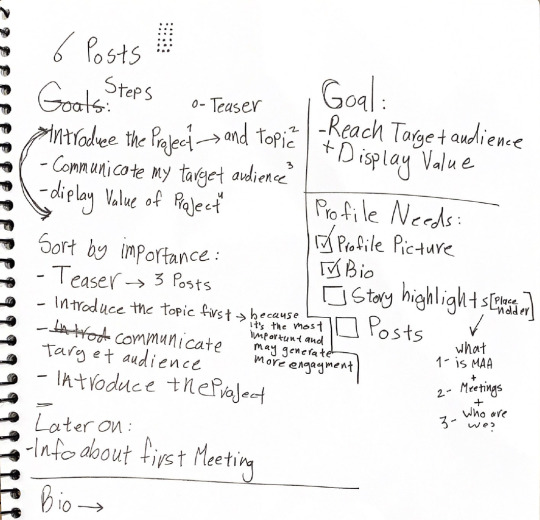 6 Posts
Goals: Steps
0- Teaser
Introduce the Project¹ → and topic²
- Communicate my target audience³
- diplay Value of Project⁴
Sort by importance:
- Teaser → 3 Posts
- Introduce the topic first → because
it's the most
important and
may generate
more engagment
- Introd communicate
target audience
- Introduce the Project
Later on:
- Info about first Meeting
Bio →
Goal:
- Reach Target audience
+ Display Value
Profile Needs:
☑ Profile Picture
☑ Bio
☐ Story highlights [Place holder]
☐ Posts
what
1- is MAA
+
2- Meetings
+
3- Who are
we?